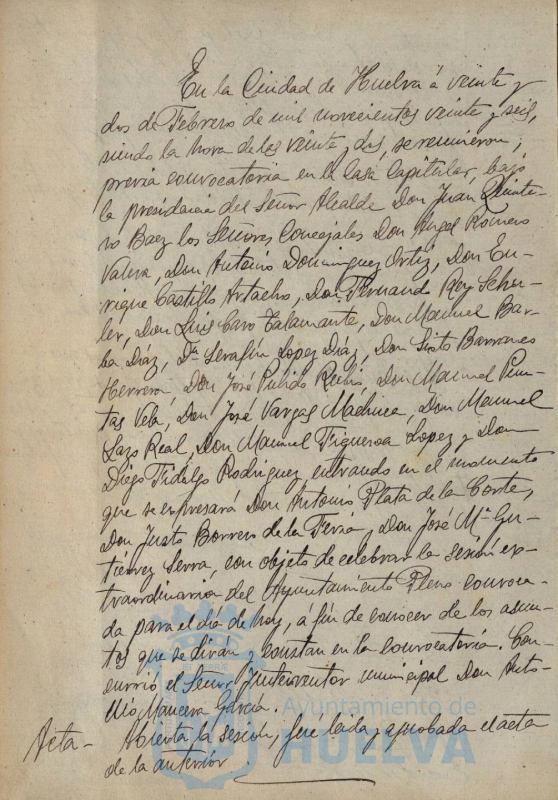 En la Ciudad de Huelva á veinte y
dos de Febrero de mil novecientos veinte y seis,
siendo la hora de las veinte y dos, se reunieron,
previa convocatoria en la Casa Capitular, bajo
la presidencia del Señor Alcalde Don Juan Quinte-
ro Baez los Señores Concejales Don Angel Romero
Don Antonio Dominguez Ortiz, Don En-
rique Castillo Artacho, Don Fernando Rey
Don Luis Caro Talamante, Don Manuel Bar-
ba Díaz, Dn Serafín Lopez Díaz, Don Sixto Barranco
Herrera, Don José Pulido Rubio, Don Manuel Pun-
tas Vela, Don José Vargas Machuca, Don Manuel
Lazo Real, Don Manuel Figueroa Lopez y Don
Diego Fidalgo Rodriguez, entrando en el momento
que se expresará Don Antonio Plata de la Corte,
Don Justo Borrero de la Feria, Don José Mª Gu-
tierrez Serra, con objeto de celebrar la sesión ex-
traordinaria del Ayuntamiento Pleno convoca-
da para el día de hoy, á fin de conocer de los asun-
tos que se dirán y constan en la convocatoria. Con-
currió el Señor Interventor municipal Don Anto-
nio Mancera García.
Acta - Abierta la sesión, fué leída y aprobada el acta
de la anterior.
Ayuntamiento de
HUELVA